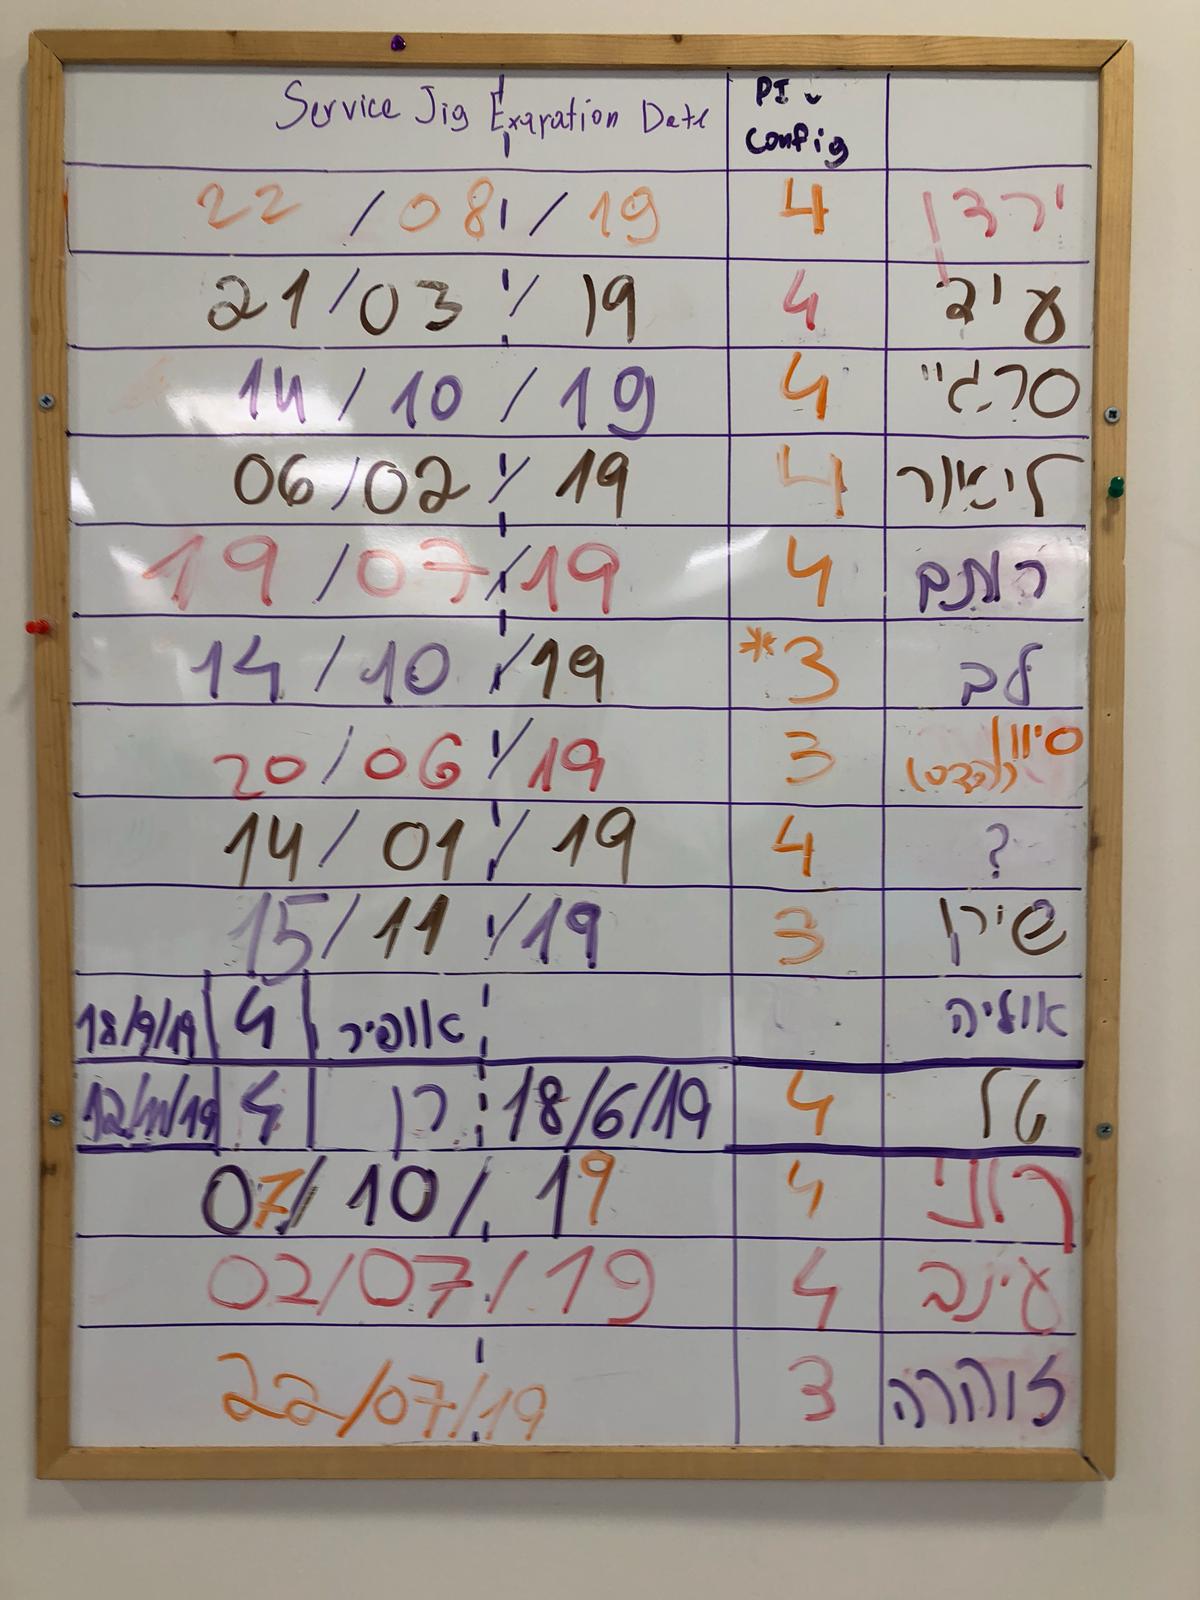 Service Jig Exparation Date PI config
22/08/19 4 ירדן
21/03/19 4 עידן
14/10/19 4 סרגיי
06/02/19 4 ליאור
19/07/19 4 רותם
14/10/19 *3 לב
20/06/19 3 סיוון (הנדס)
14/01/19 4 ?
15/11/19 3 שירן
18/9/19 4 אופיר אוליה
12/11/19 4 רן 18/6/19 4 טל
07/10/19 4 רוני
02/07/19 4 עינב
22/07/19 3 זוהרה